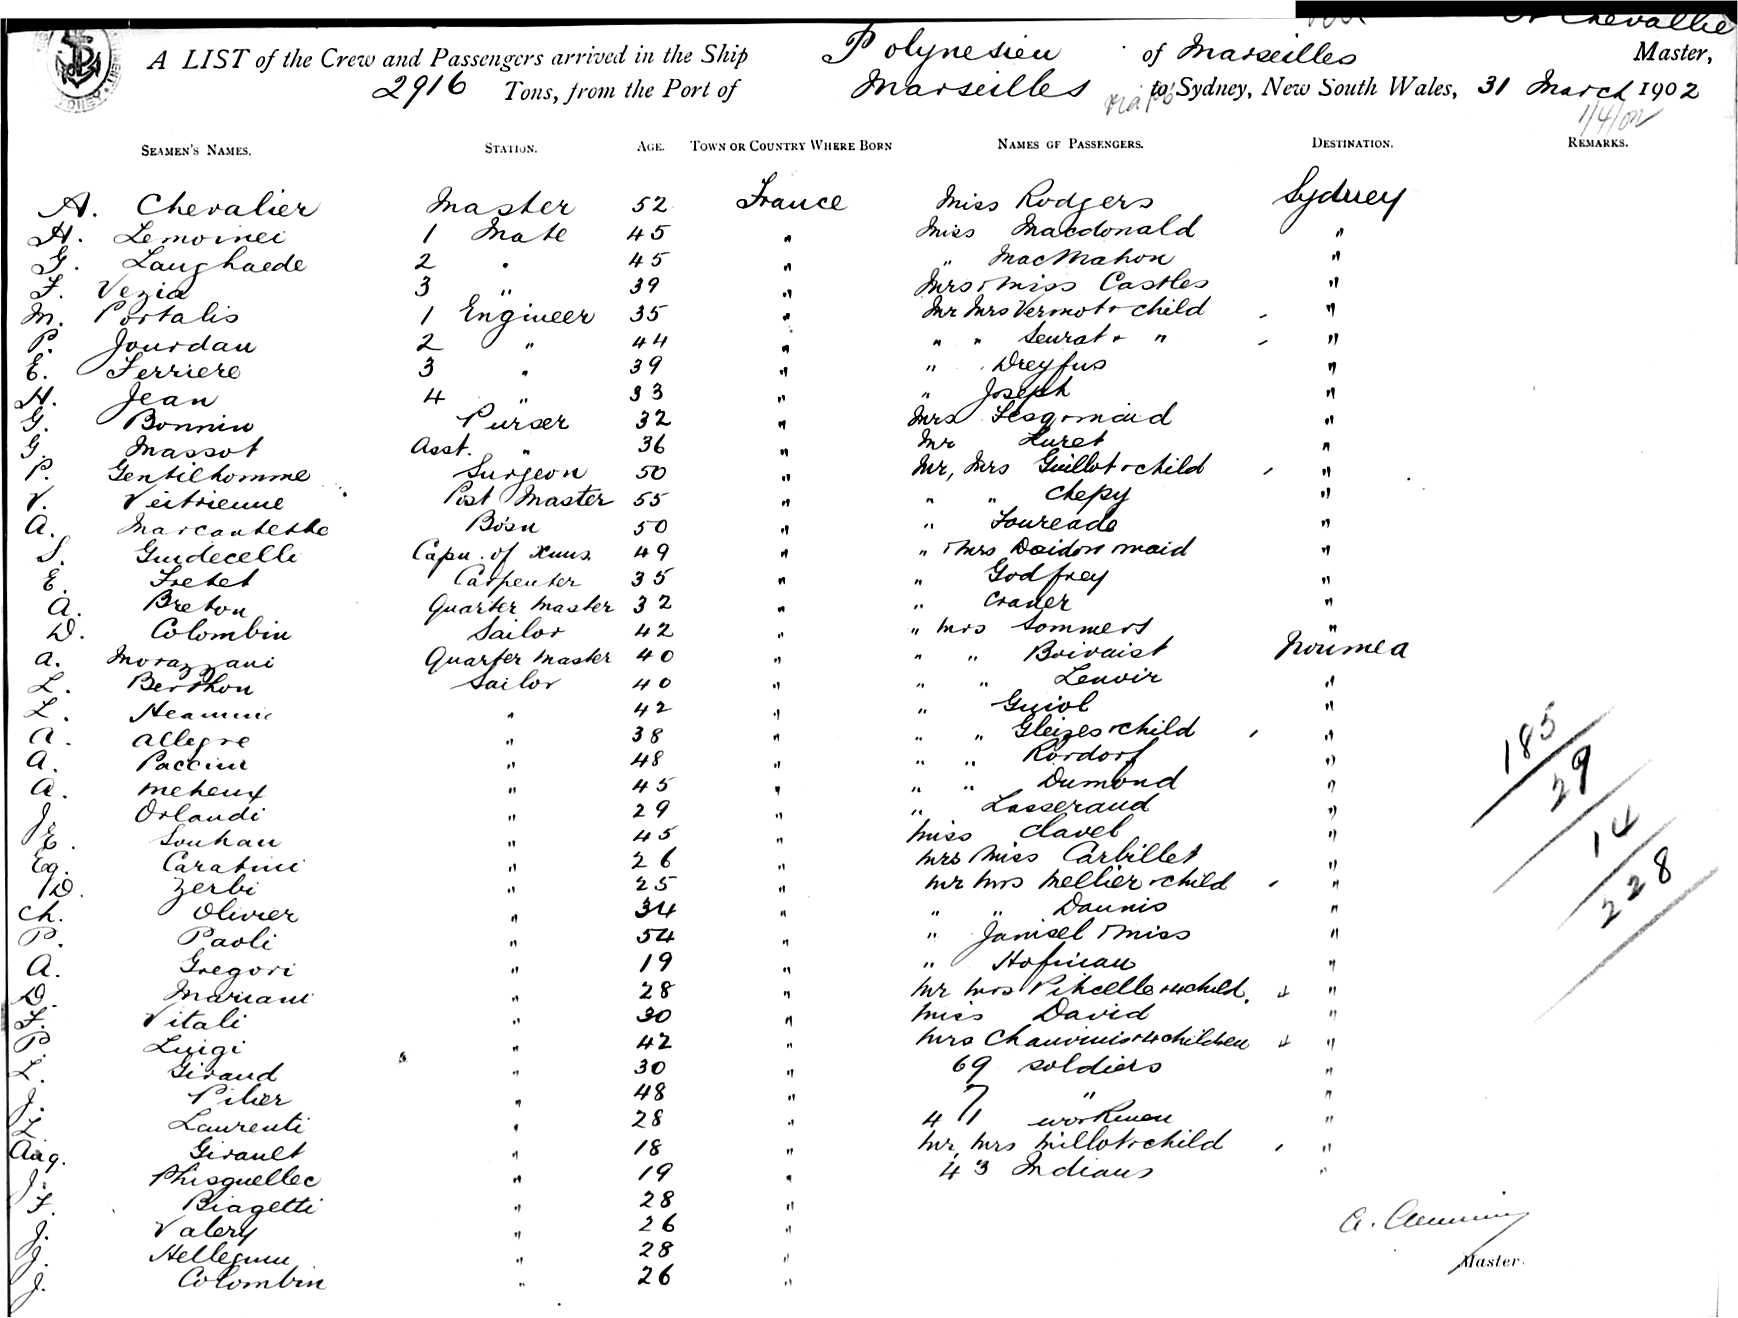 A. Chevallie
A LIST of the Crew and Passengers arrived in the Ship Polynesien of Marseilles Master,
2916 Tons, from the Port of Marseilles to Sydney, New South Wales, 31 March 1902
1/4/02
SEAMEN'S NAMES. STATION. AGE. TOWN OR COUNTRY WHERE BORN NAMES OF PASSENGERS. DESTINATION. REMARKS.
A. Chevalier Master 52 France Miss Rodgers Sydney
H. Lemoinei 1 Mate 45 " Miss Macdonald "
G. Laughaede 2 " 45 " " MacMahon "
F. Vezia 3 " 39 " Mrs & Miss Castles "
M. Portalis 1 Engineer 35 " Mr Mrs Vermot & child "
P. Jourdan 2 " 44 " " " Seurat & " "
E. Ferriere 3 " 39 " " Dreyfus "
H. Jean 4 " 33 " " Joseph "
G. Bonnin Purser 32 " Mrs & maid "
G. Massot Asst. " 36 " Mr Huret "
P. Gentilhomme Surgeon 50 " Mr, Mrs Guillot & child "
V. Veitrienne Post Master 55 " " " Chepy "
A. Bosn 50 " " Foureade "
S. Guidecelli Capn. of 49 " " & Mrs maid "
E. Fretet Carpenter 35 " " Godfrey "
A. Breton Quarter Master 32 " " Craner "
D. Colombin Sailor 42 " " Mrs Sommers "
A. Morazzani Quarter Master 40 " " " Boivaist Noumea
L. Berthon Sailor 40 " " " Lenoir "
L. " 42 " " Guiol "
A. Allegre " 38 " " " Gleizes & child "
A. Paccini " 48 " " " Rordorf "
A. Meheux " 45 " " " Dumond "
J. Orlandi " 29 " " Lasseraud "
E. Souhau " 45 " Miss Clavel "
Eg. Caratini " 26 " Mrs Miss Carbillet "
D. Zerbi " 25 " Mr Mrs Mellier & child "
Ch. Olivier " 34 " " " Daunis "
P. Paoli " 54 " " Janisel & Miss "
A. Gregori " 19 " " Hofman "
D. Mariani " 28 " Mr Mrs & 4 child. 4 "
F. Vitali " 30 " Miss David "
P. Luigi " 42 " Mrs & 4 children 4 "
L. Giraud " 30 " 69 soldiers "
J. Pilier " 48 " 7 " "
L. Laurenti " 28 " 41 workmen "
Aug. Girault " 18 " Mr, Mrs Millot & child "
J. Phisquellec " 19 " 43 Indians "
F. Biagetti " 28 "
J. Valery " 26 "
J. " 28 "
J. Colombin " 26 "
185
29
14
228
Master.